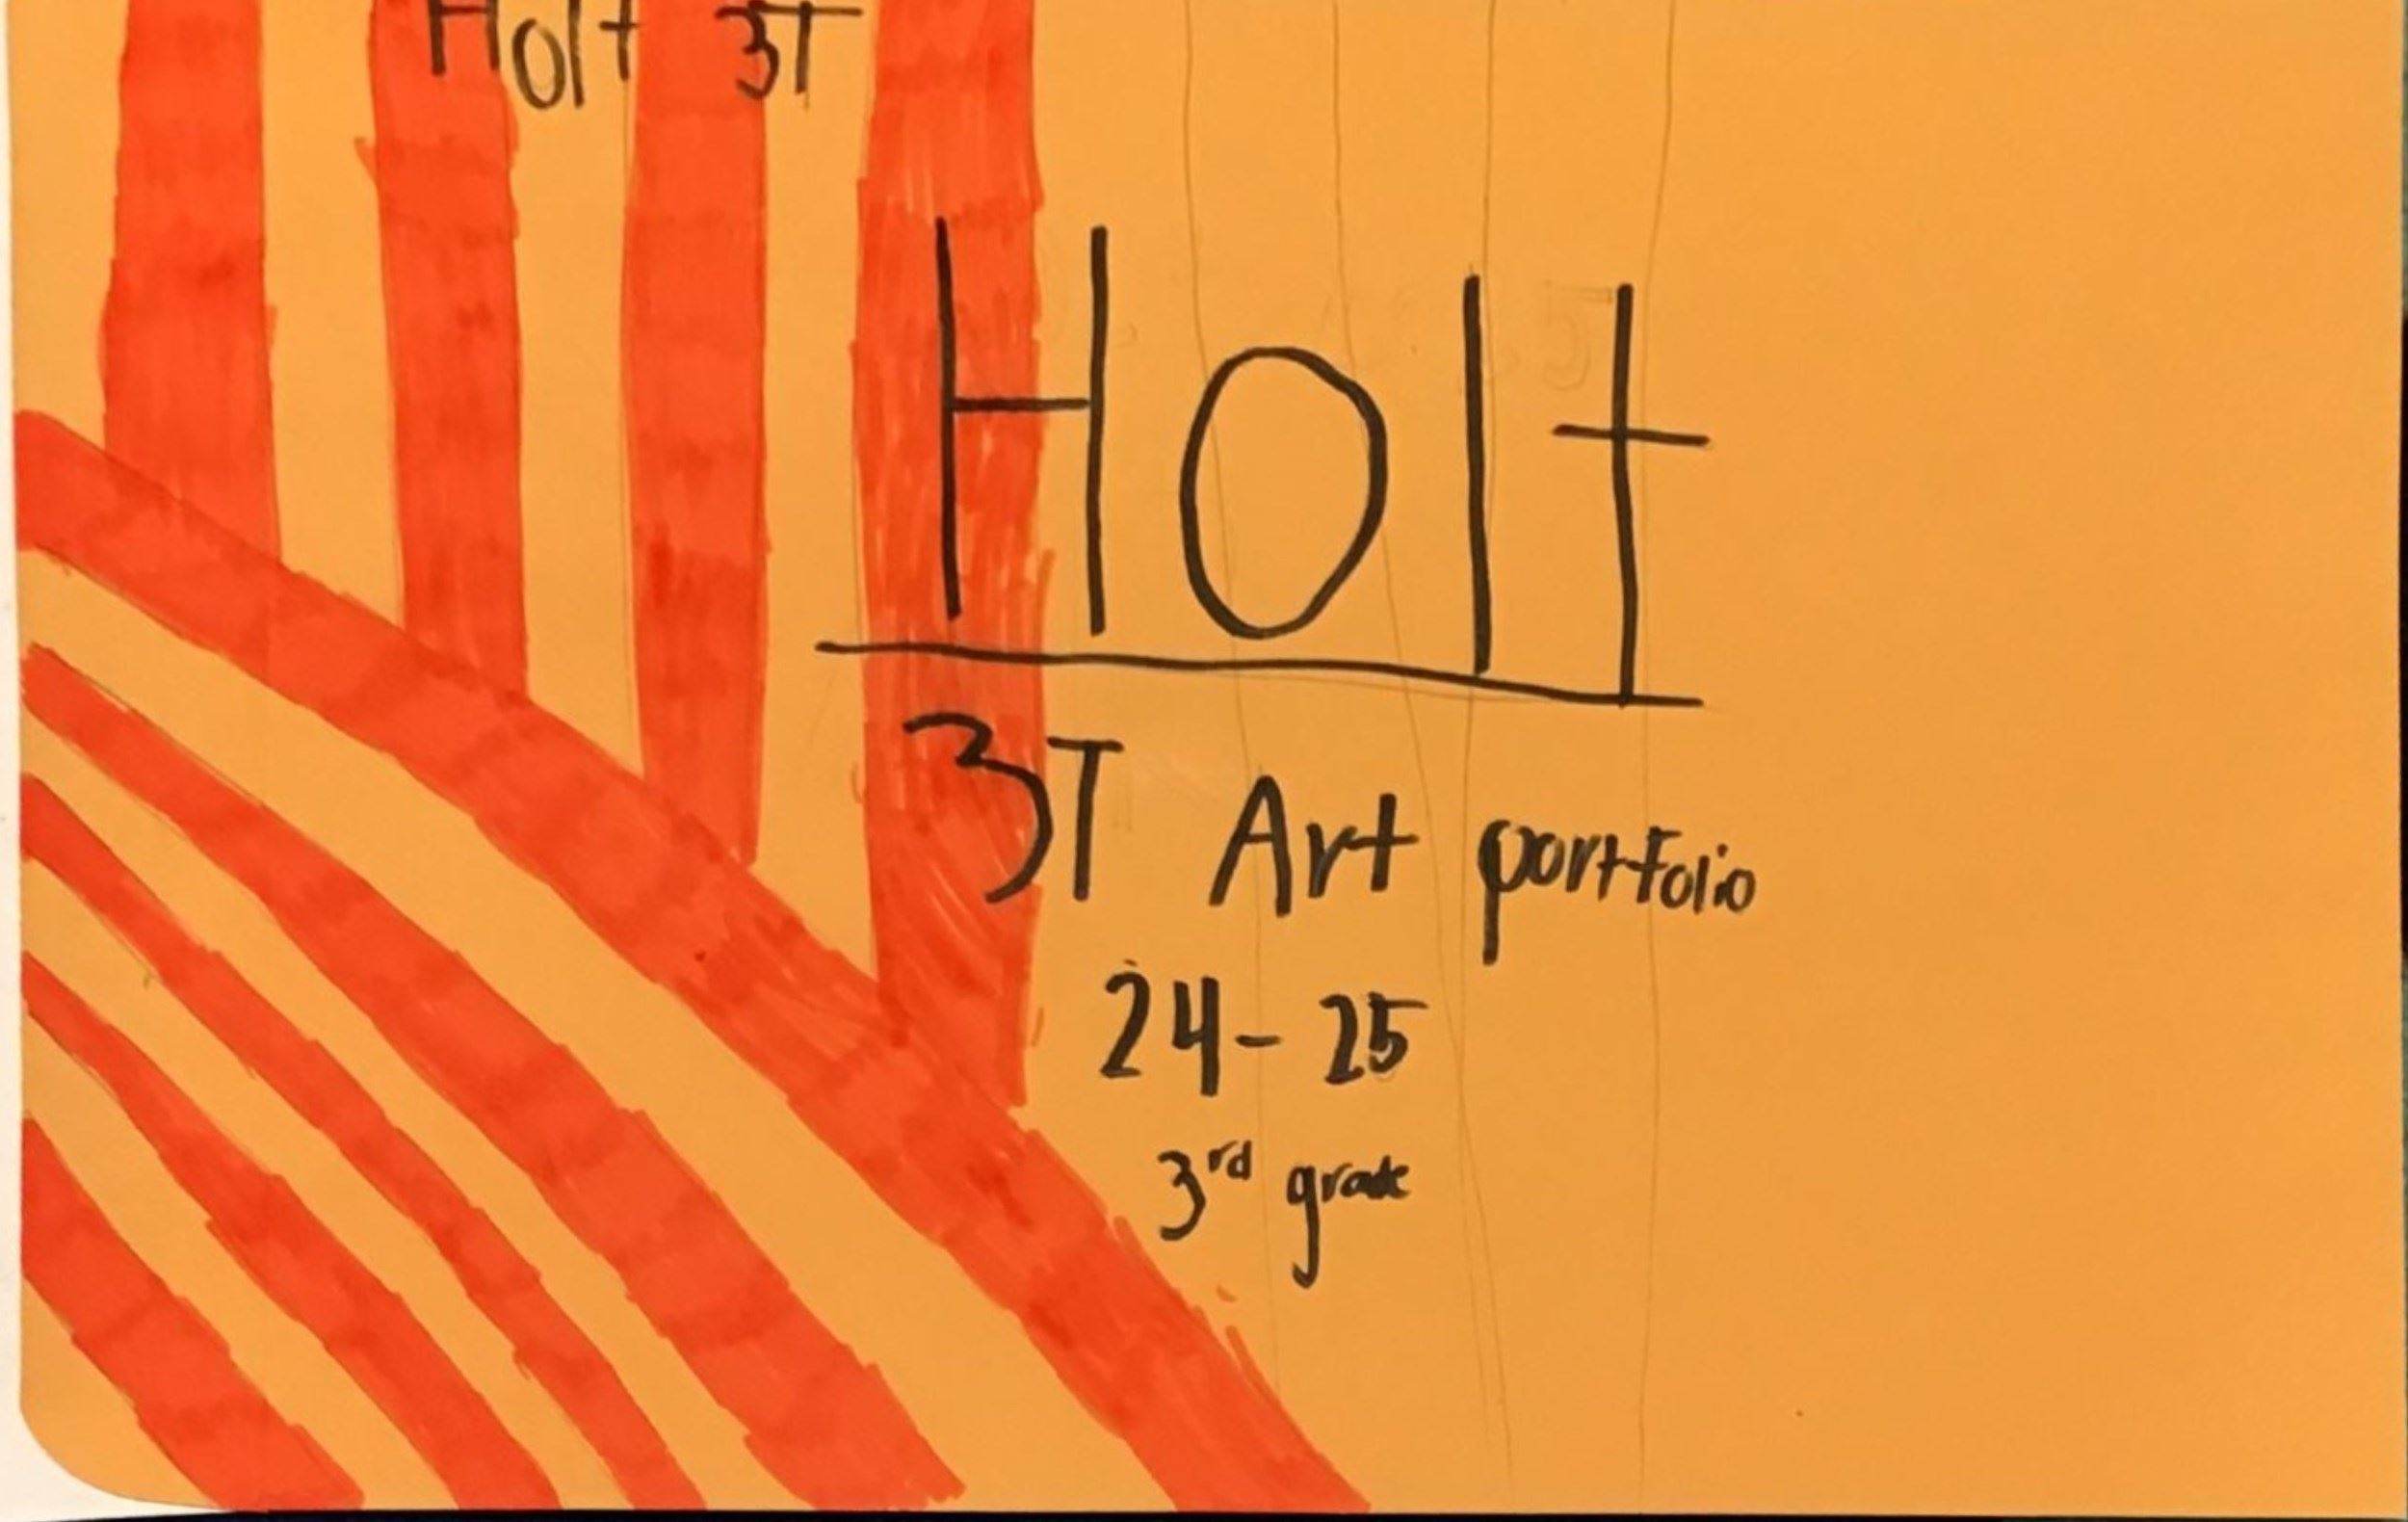 Holt 3T
Holt
3T Art portfolio
24-25
3rd grade